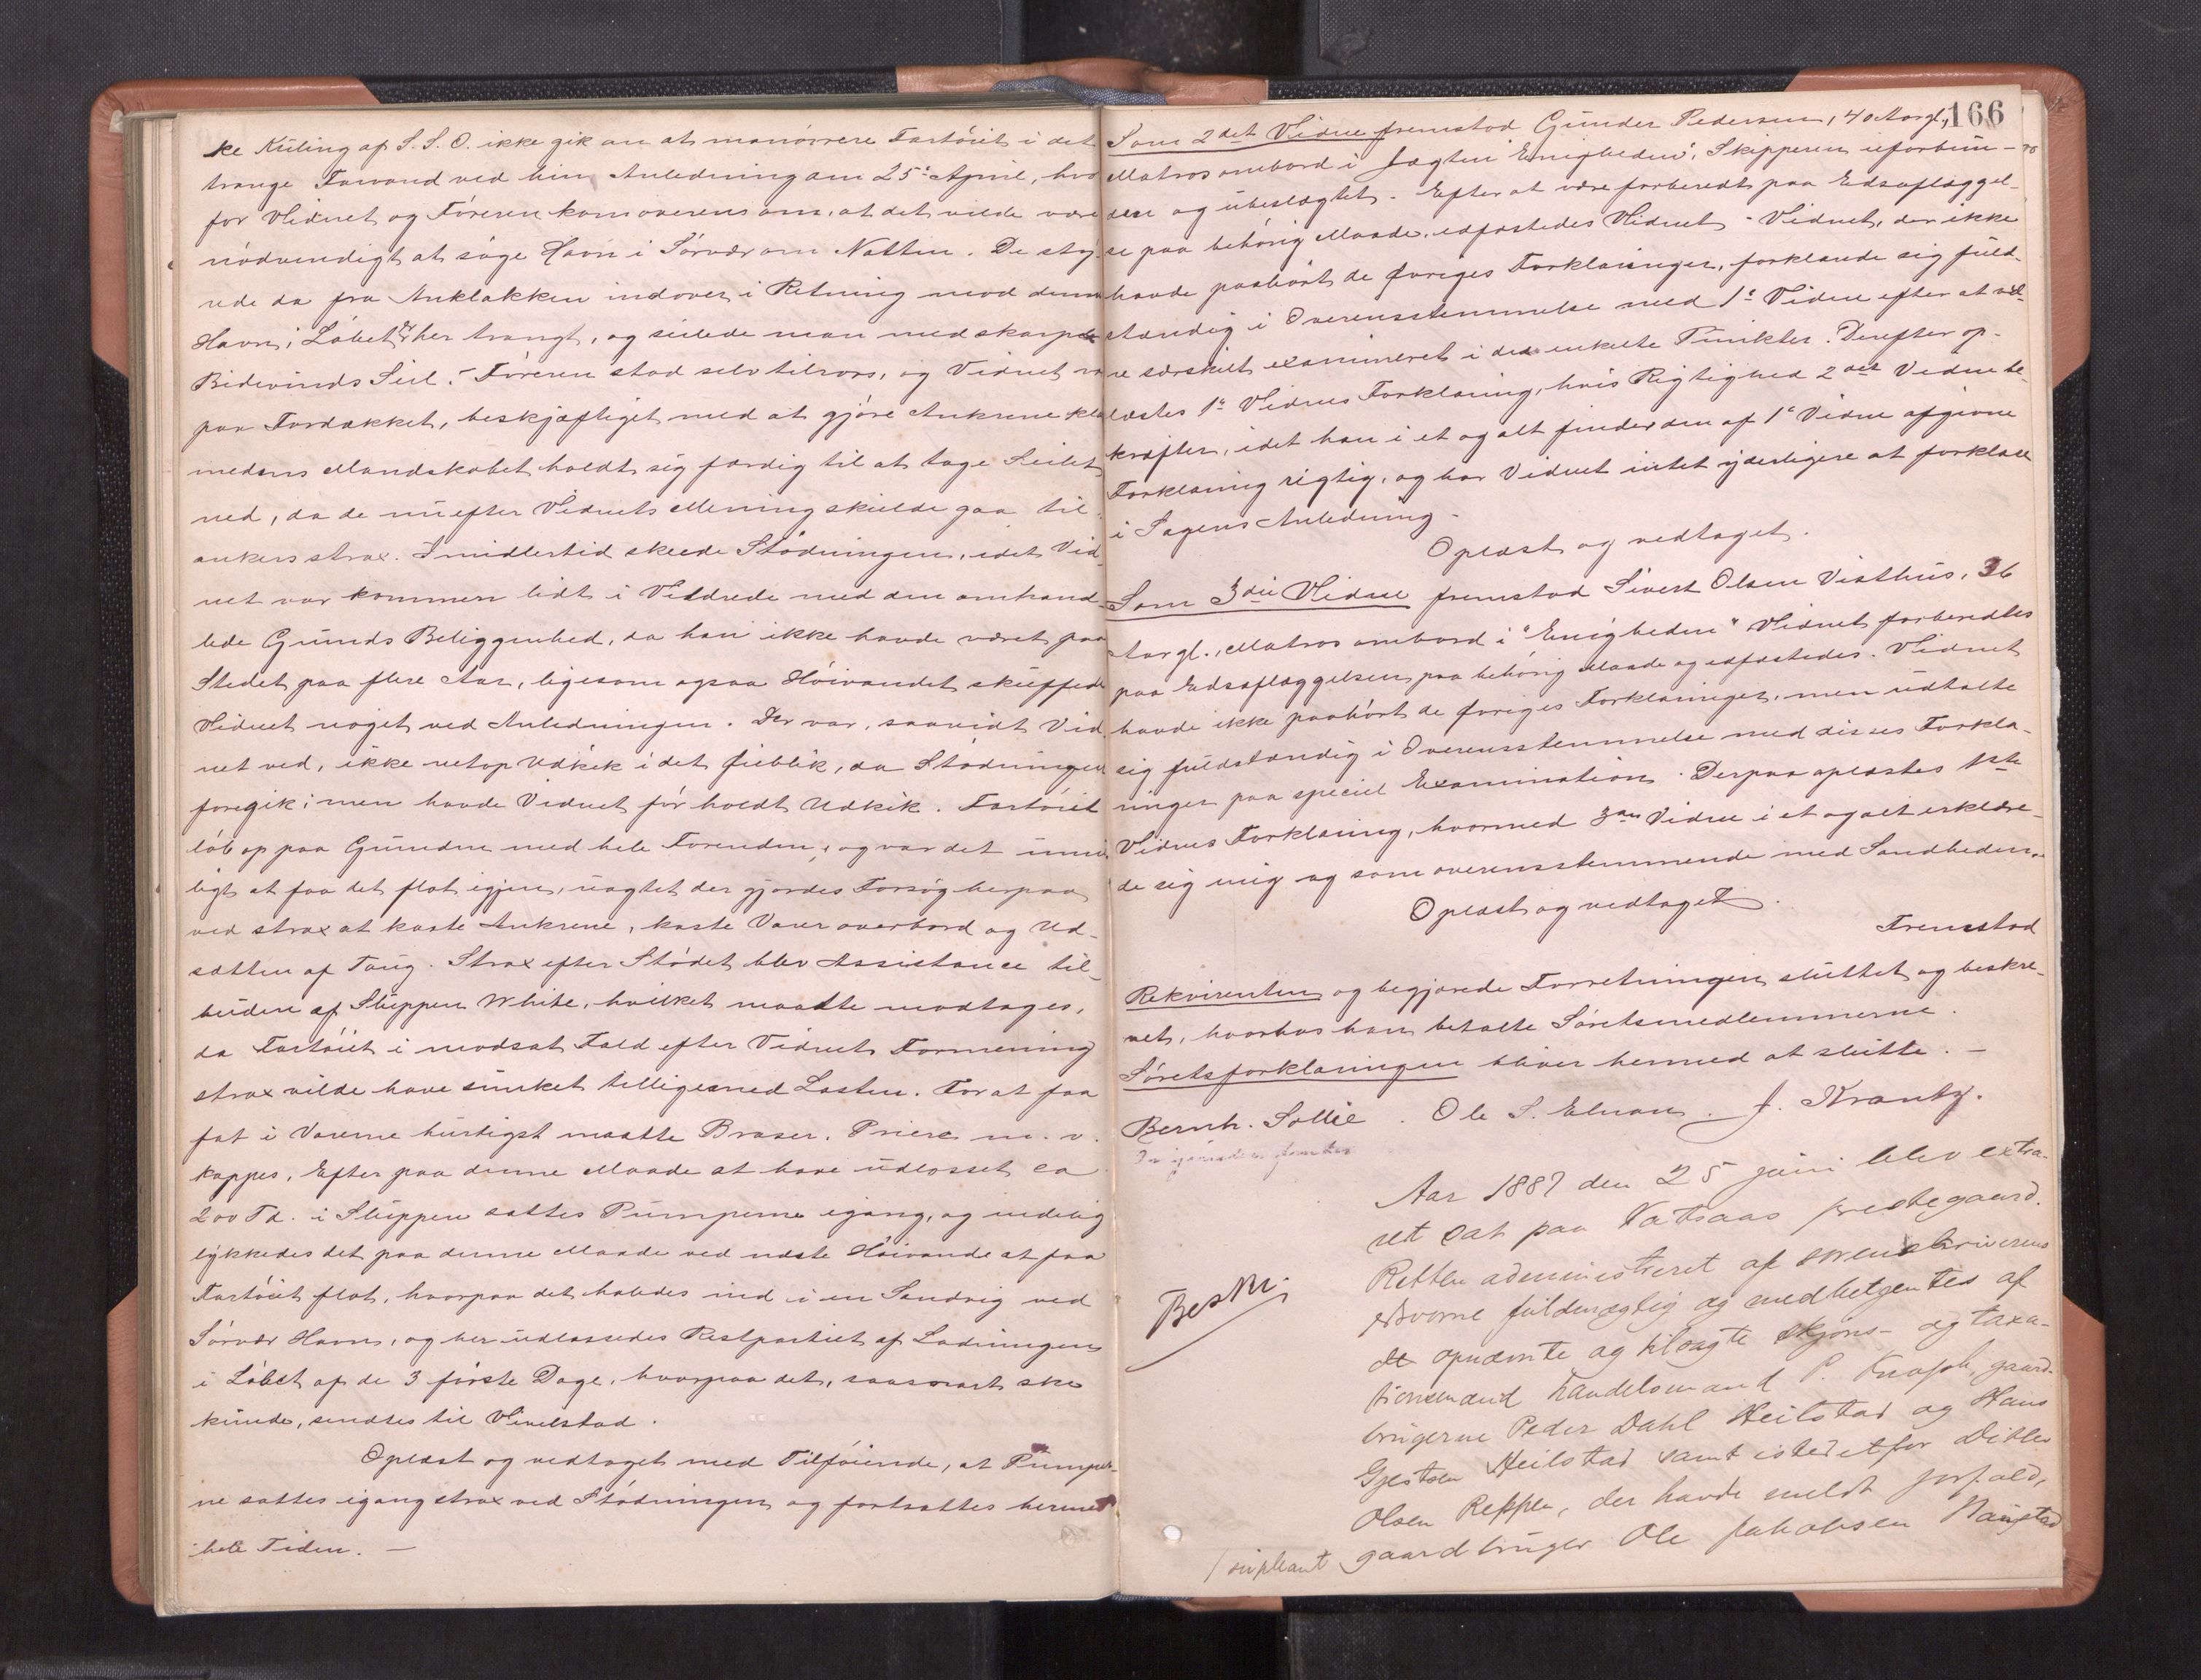 ke Kuling af S. S. O. ikke gik an at manövrere Fartöiet i det
trange Farvand ved hin Anledning am 25de April, hvo
for Vidnet og Föreren kom overens om, at det vilde være
nödvendigt at söge Havn i Sörvær om Natten. De sty-
rede da fra Anklakken indover i Retning mod denne
Havn; Löbet er her trangt, og seilede man med skarpe
Bidevinds Seil. - Föreren stod selv tilrors, og Vidnet va
paa Fordækket, beskjæftiget med at gjöre Ankrene kla
medens Mandskabet holdt sig færdig til at tage Seilet
ned, da de nu efter Vidnets Mening skulde gaa til
ankers strax. Imidlertid skeede Stödningen, idet Vid-
net var kommen lidt i Vildrede med den omhand-
lede Grunds Beliggenhed, da han ikke havde været paa
Stedet paa flere Aar, ligesom ogsaa Höivandet skuffede
Vidnet noget ved Anledningen. Der var, saavidt Vid
net ved, ikke netop Udkik i det Øieblik, da Stödningen
foregik; men havde Vidnet för holdt Udkik. Fartöiet
löb op paa Grunden med hele Forenden, og var det umu
ligt at faa det flot igjen, uagtet der gjordes Forsög herpaa
ved strax at kaste Ankrene, kaste Varer overbord og Ud-
sætten af Toug. Strax efter Stödet blev Assistance til-
buden af Sluppen White, hvilket maatte modtages,
da Fartöiet i modsat Fald efter Vidnets Formening
strax vilde have sunket tilligemed Lasten. For at faa
fat i Varerne hurtigst maatte Braser, Priere m. v.
kappes. Efter paa denne Maade at have udlosset ca
200 Td. i Sluppen sattes Pumperne igang, og endelig
lykkedes det paa denne Maade ved næste Höivande at faa
Fartöiet flot, hvorpaa det haledes ind i en Sandvig ved
Sörvær Havn, og her udlossedes Restpartiet af Ladningen
i Löbet af de 3 förste Dage, hvorpaa det, saasnart ske
kunde, sendtes til Vivelstad.
Oplæst og vedtaget med Tilföiende, at Pumper-
ne sattes igang strax ved Stödningen og fortsattes hermed
hele Tiden. -
166
Som 2det Vidne fremstod Gunder Pedersen, 40 Aargl.,
Matros ombord i Jagten "Enigheden", Skipperen uforbun-
den og ubeslægtet. Efter at være forberedt paa Edsaflæggel-
se paa behörig Maade, edfæstedes Vidnet - Vidnet, der ikke
havde paahört de foriges Forklaringer, forklarede sig fuld-
stændig i Overensstemmelse med 1ste Vidne efter at væ-
re særskilt examineret i de enkelte Punkter. Derefter op-
læstes 1ste Vidnes Forklaring, hvis Rigtighed 2det Vidne be-
kræfter, idet han i et og alt finder den af 1ste Vidne afgivne
Forklaring rigtig, og har Vidnet intet yderligere at forklare
i Sagens Anledning -
Oplæst og vedtaget.
Som 3die Vidne fremstod Sivert Olsen Visthus, 36
Aargl., Matros ombord i "Enigheden" Vidnet forberedtes
paa Edsaflæggelsen paa behörig Maade og edfæstedes. Vidnet
havde ikke paahört de foriges Forklaringer, men udtalte
sig fuldstændig i Overensstemmelse med disses Forkla-
ringer paa speciel Examination. Derpaa oplæstes 1ste
Vidnes Forklaring, hvormed 3die Vidne i et og alt erklære-
de sig enig og som overensstemmende med Sandheden.
Oplæst og vedtaget.
Fremstod
Rekvirenten og begjærede Forretningen sluttet og beskre-
vet, hvorhos han betalte Söretsmedlemmerne.
Söretsforklaringen bliver hermed at slutte. -
Bernh. Sollie. Ole S. Elvan. J. Krantz.
Aar 1887 den 25 juni blev extra-
ret sat paa Vatsaas prestegaard.
Retten administreret af sorenskriverens
edsvorne fuldmægtig og medbetjentes af
de opnævnte og tilsagte skjöns- og taxa-
tionsmænd handelsmand P. Knoph, gaard-
brugerne Peder Dahl Heilstad og Hans
Gjestsen Heilstad samt istedetfor Ditlev
Olsen Reppen, der havde meldt forfald,
suppleant gaardbruger Ole Jakobsen
Beskr.